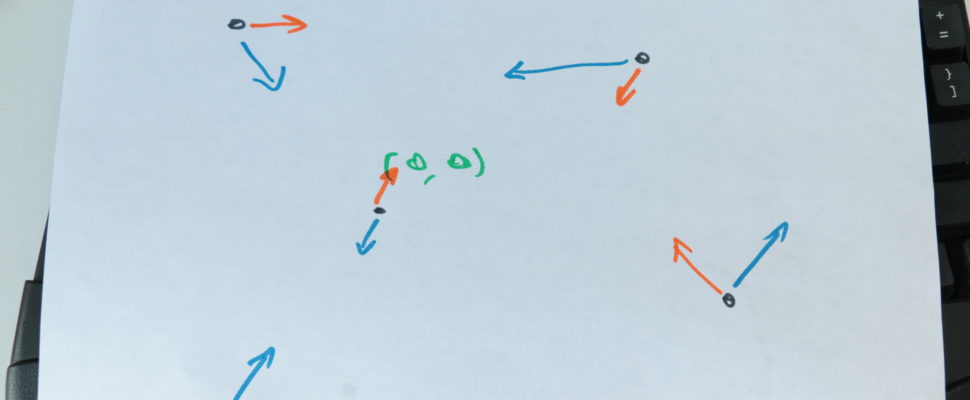 +
=
}
]
(0, 0)